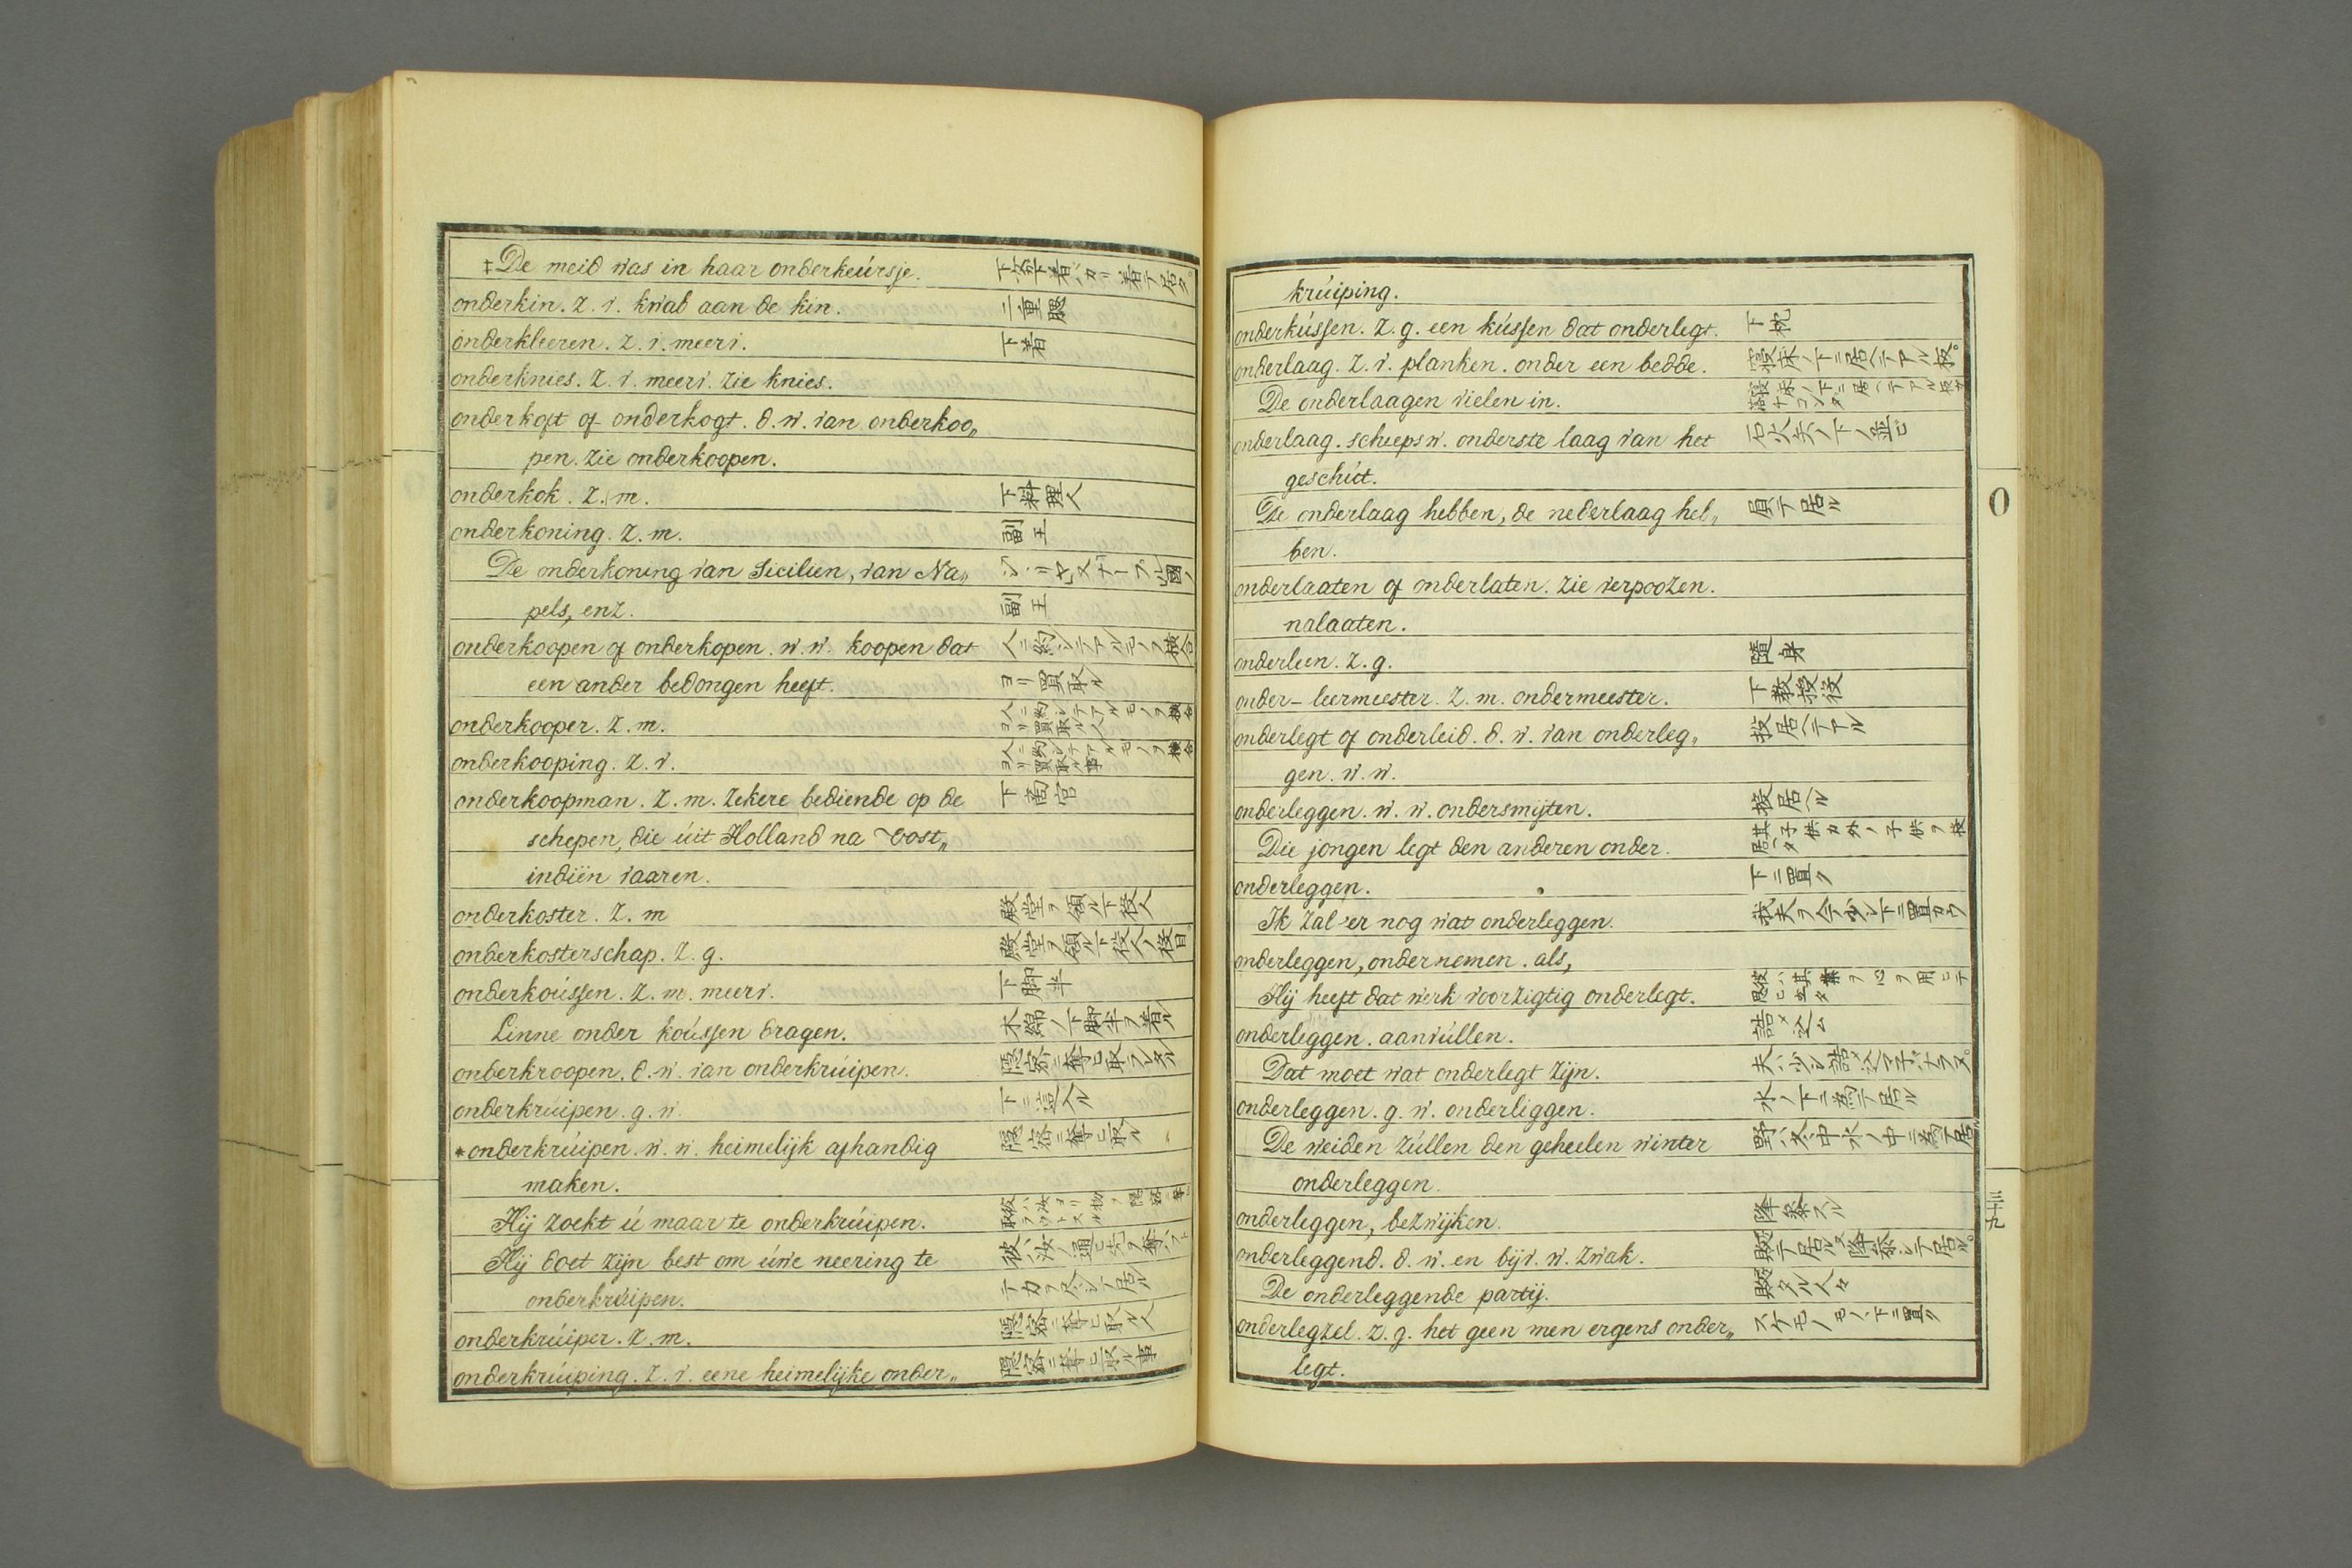 ‡De meid was in haar onderkeúrsje. 下女下着ハカリ着テ居タ。
onderkin. z. v. kwab aan de kin. 二重腮
onderkleeren. z. v. meerv. 下着
onderknies. z. v. meerv. zie knies.
onderkoft of onderkogt. d. w. van onderkoo„
pen. zie onderkoopen.
onderkok. z. m. 下料理人
onderkoning. z. m. 副王
De onderkoning van Sicilien, van Na„
pels, enz. 副王
onderkoopen of onderkopen. w. w. koopen dat 人ニ約シテアルモノヲ
een ander bedongen heeft. ヨリ買取ル
onderkooper. z. m. 人ニ約シテアルモノヲ
ヨリ買取ル人
onderkooping. z. v. 人ニ約シテアルモノヲ
ヨリ買取ル事
onderkoopman. z. m. zekere bediende op de 下商官
schepen, die úit Holland na Oost„
indiën vaaren.
onderkoster. z. m 殿堂ヲ領ル下役人
onderkosterschap. z. g. 殿堂ヲ領ル下役人ノ役目
onderkoússen. z. m. meerv. 下脚半
Linne onder koússen dragen. 木綿ノ下脚半ヲ着ル
onderkroopen. d. w. van onderkrúipen. 隠密ニ奪ヒ取ラレタル
onderkrúipen. g. w. 下ニ這入ル
*onderkrúipen. w. w. heimelijk afhandig 隠密ニ奪ヒ取ル
maken.
Hij zoekt ú maar te onderkrúipen.
Hij doet zijn best om úwe neering te
onderkrúipen. テ力ヲ尽シテ居ル
onderkrúiper. z. m. 隠密ニ奪ヒ取ル人
onderkrúiping. z. v. eene heimelijke onder„ 隠密ニ奪ヒ取ル事
krúiping.
onderkússen. z. g. een kússen dat onderlegt. 下枕
onderlaag. z. v. planken. onder een bedde. 寝床ノ下ニ居ヘテアル板。
De onderlaagen vielen in. 寝床ノ下ニ居ヘテアル板ガ
onderlaag. scheepsw. onderste laag van het 石火矢ノ下ノ並ヒ
geschút.
De onderlaag hebben, de nederlaag heb„ 負テ居ル
ben.
onderlaaten of onderlaten. zie verpoozen.
nalaaten.
onderleen. z. g. 随身
onder-leermeester. z. m. ondermeester. 下教授役
onderlegt of onderleid. d. w. van onderleg„ 投居ヘテアル
gen. w. w.
onderleggen. w. w. ondersmijten. 投居ヘル
Die jongen legt den anderen onder. 其子供カ外ノ子供ヲ投
居ヘタ
onderleggen. 下ニ置ク
Ik zal 'er nog wat onderleggen. 我夫ヲ今少シ下ニ置カウ
onderleggen, ondernemen. als,
Hij heeft dat werk voorzigtig onderlegt. 彼ハ其業ヲ心ヲ用ヒテ
思ヒ立タ
onderleggen. aanvúllen. 詰メ込ム
Dat moet wat onderlegt zijn. 夫ハ少シ詰メ込マ子ハナラヌ。
onderleggen. g. w. onderliggen. 水ノ下ニ為テ居ル
De weiden zúllen den geheelen winter 野ハ冬中水ノ中ニ為テ居
onderleggen.
onderleggen, bezwijken. 降参スル
onderleggend. d. w. en bijv. w. zwak. 敗テ居ル又降参シテ居ル。
De onderleggende partij. 敗タル人々
onderlegzel. z. g. het geen men ergens onder„ スケモノ モノヽ下ニ置ク
legt.
O
三十九